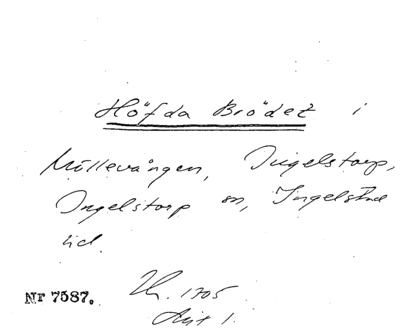 Höfda Brödet i
Möllevången, Ingelstorp,
Ingelstorp sn, Ingelstad
hd.
Nr 7587.
1705